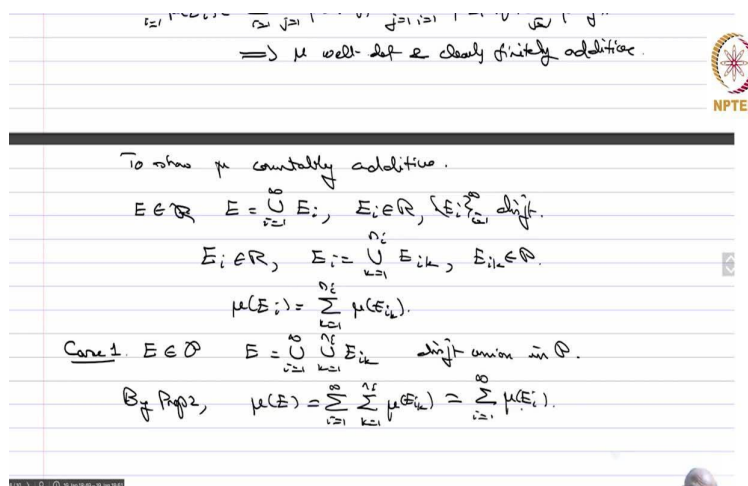 ⟹ μ well-def & clearly finitely additive.
NPTE
To show μ countably additive.
E ∈ R E = ∪_{i=1}^{∞} E_i, E_i ∈ R, {E_i}_{i=1}^{∞} disjt.
E_i ∈ R, E_i = ∪_{k=1}^{n_i} E_{ik}, E_{ik} ∈ P.
μ(E_i) = Σ_{k=1}^{n_i} μ(E_{ik}).
Case 1. E ∈ P E = ∪_{i=1}^{∞} ∪_{k=1}^{n_i} E_{ik} disjt union in P.
By Prop 2, μ(E) = Σ_{i=1}^{∞} Σ_{k=1}^{n_i} μ(E_{ik}) = Σ_{i=1}^{∞} μ(E_i).